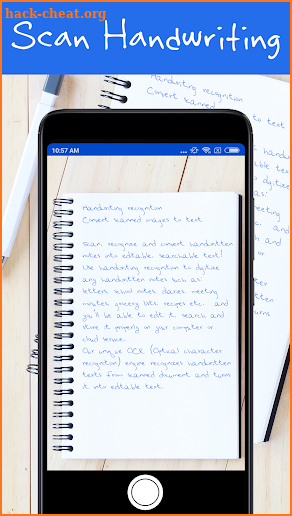 hack-cheat.org
Scan Handwriting
Handwriting recognition
Convert scanned
to text
10:57 AM
Handwriting recognition
Convert scanned images to text
Scan, recognise and convert handwritten
notes into editable, searchable text!
Use handwriting recognition to digitize
any handwritten notes such as
letters, school notes, diaries, meeting
minutes, grocery lists, recipes etc. and
you'll be able to edit it, search and
store it properly on your computer or
cloud service.
Our unique OCR (Optical character
recognition) engine recognizes handwritten
texts from scanned document and turns
it into editable text.
hack-cheat.org